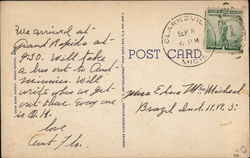 We arrived at
Grand Rapids at
9:30. Will take
a bus out to Aunt
Minnies. Will
write when we get
out there. Every one
is O.K.
love
Aunt Flo.
POST CARD
CLARKSVILLE
SEP 8
PM
MICH.
Miss Edna McMichael
Brazil Ind. R.R. 5.